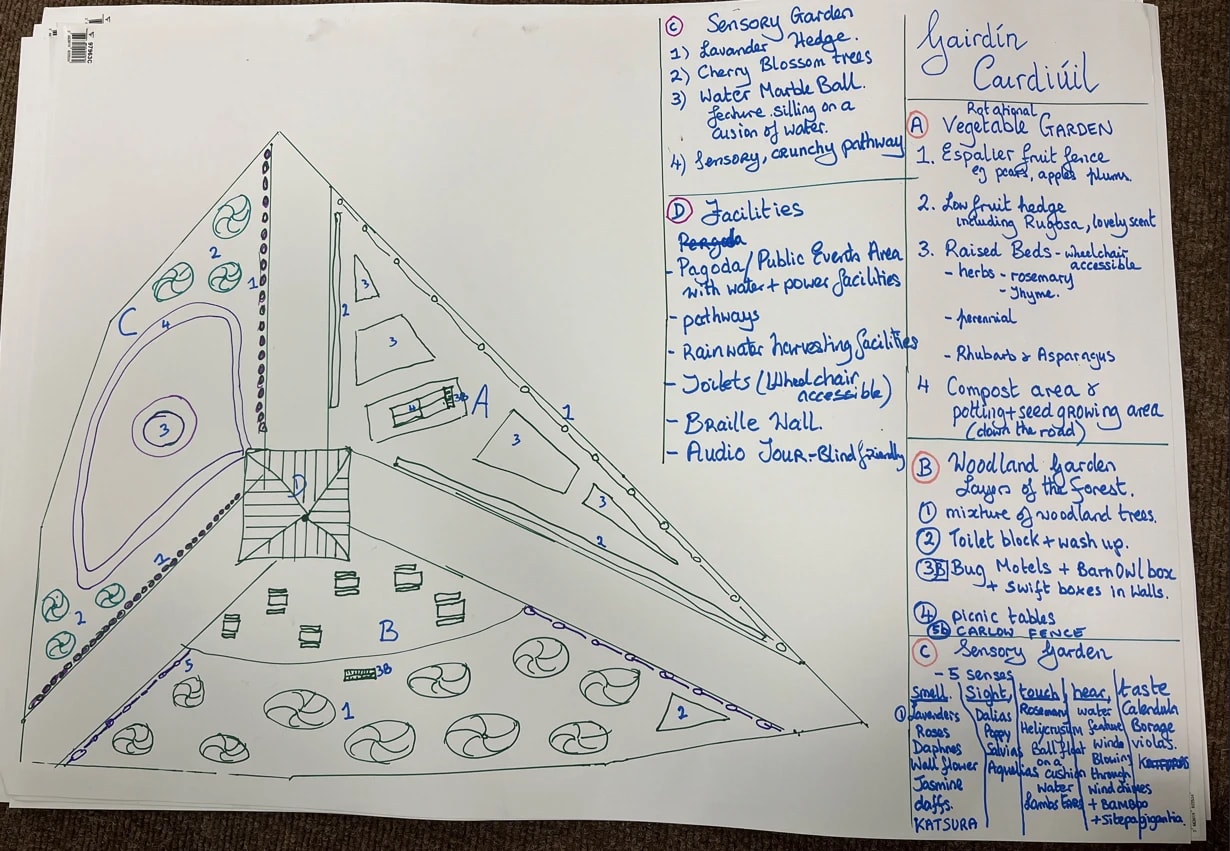 Gairdín
Cairdiúil
Rotational
A Vegetable GARDEN
1. Espalier fruit fence
eg pears, apples plums.
2. Low fruit hedge
including Rugosa, lovely scent
3. Raised Beds - wheelchair
accessible
- herbs - rosemary
- Thyme.
- perennial
- Rhubarb & Asparagus
4 Compost area &
potting + seed growing area
(down the road)
B Woodland Garden
Layers of the Forest.
1 mixture of woodland trees.
2 Toilet block + wash up.
3B Bug Motels + Barn Owl box
+ swift boxes in walls.
4 picnic tables
5b CARLOW FENCE
C Sensory Garden
- 5 senses
smell Sight, touch hear, taste
1 Lavenders Dalias Rosemary water Calendula
Roses Poppy Helycrusum feature Borage
Daphnes Salvias Ball float winds violas.
Wall flower Aquelias on a Blowing
Jasmine cushion through
daffs. water windchimes
KATSURA Lambs Ears + BAMBOO
+ Sitepagigantia
C Sensory Garden
1) Lavander Hedge.
2) Cherry Blossom trees
3) Water Marble Ball.
feature silling on a
cusion of water.
4) Sensory, crunchy pathway
D Facilities
Pergoda
- Pagoda/Public Events Area
with water + power facilities
- pathways
- Rainwater harvesting facilities
- Toilets (Wheelchair
accessible)
- Braille Wall.
- Audio Tour - Blind friendly
2
1
C
4
3
2
3
3
4
3B
A
1
3
3
2
D
1
2
B
5
3B
1
2